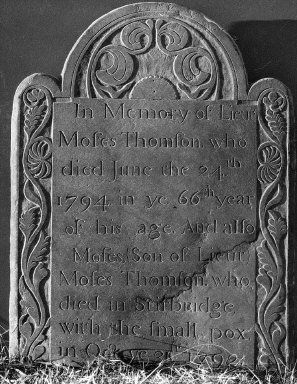 In Memory of Lieut
Moſes Thomſon, who
died June the 24th
1794, in ye 66th year
of his age. And alſo
Moſes, Son of Lieut
Moſes Thomſon, who
died in
with the ſmall pox,
in Octr ye